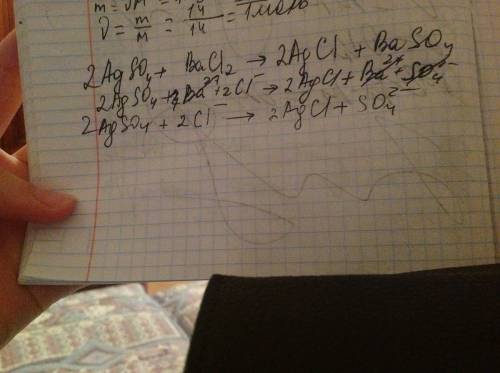 m =
ν = m/M = 14/14 = 1моль
2AgSO₄ + BaCl₂ → 2AgCl + BaSO₄
2AgSO₄ + Ba²⁺ + 2Cl⁻ → 2AgCl + Ba²⁺ + SO₄²⁻
2AgSO₄ + 2Cl⁻ → 2AgCl + SO₄²⁻